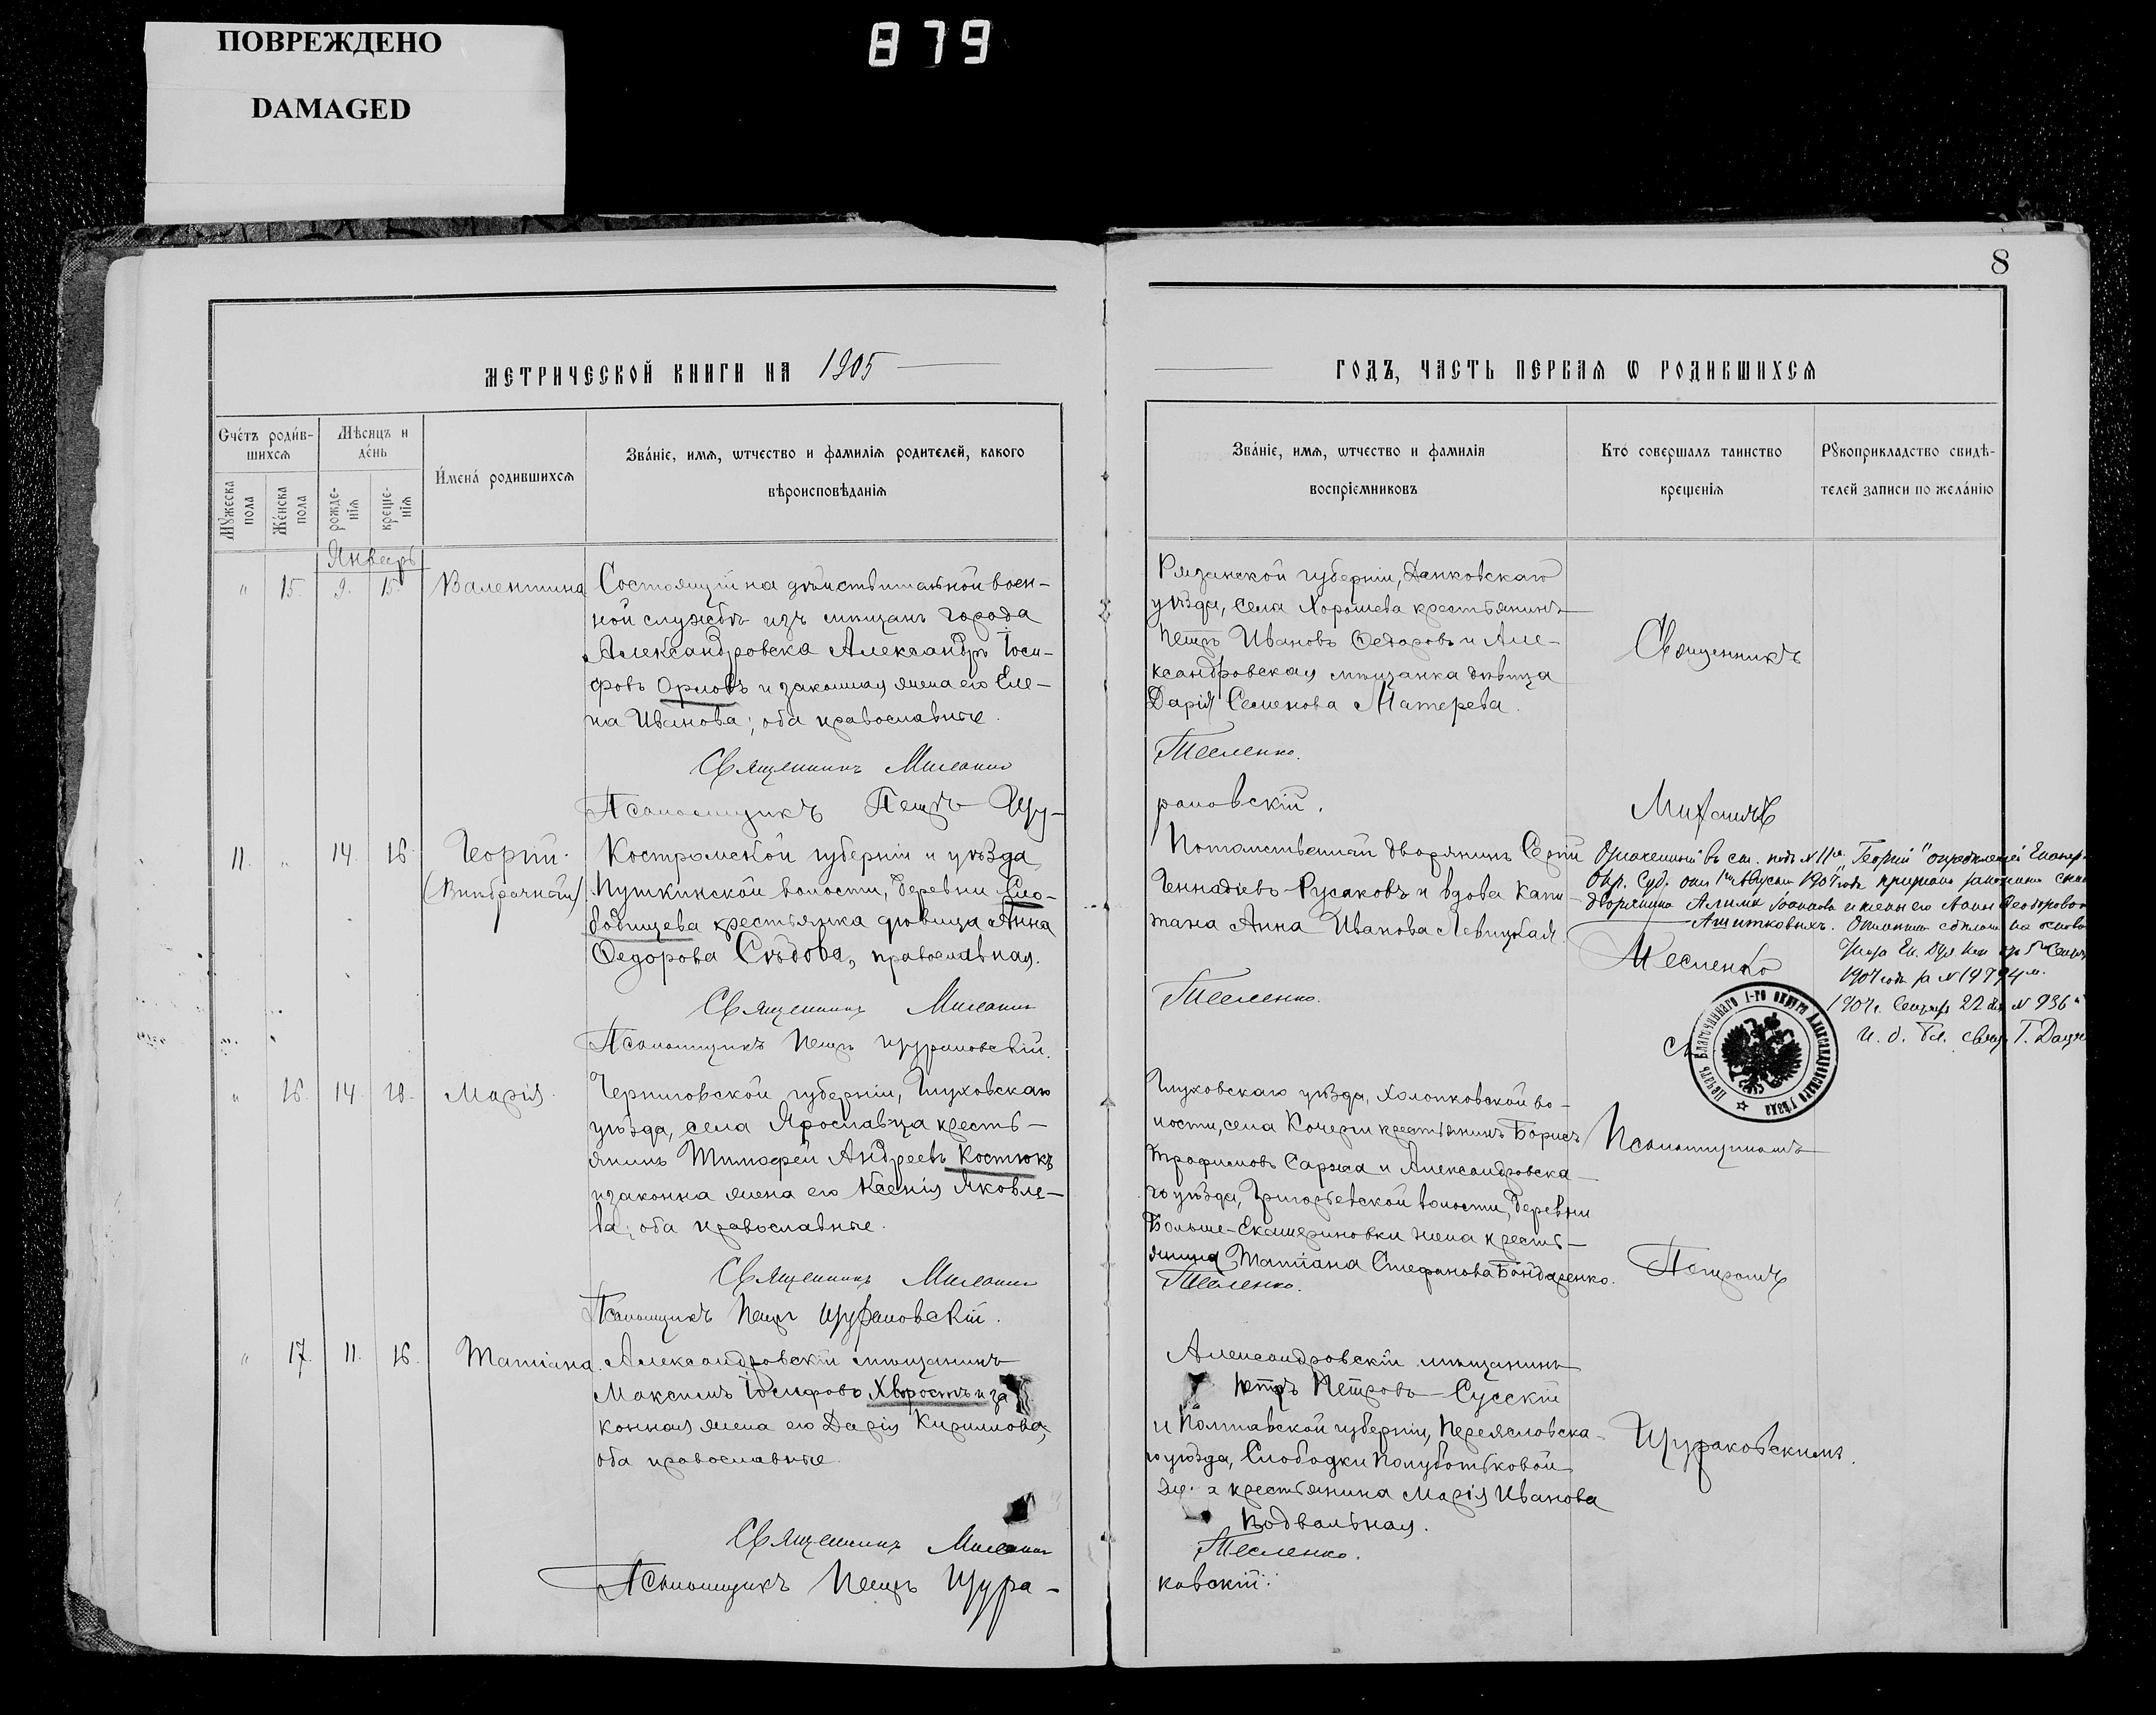 ПОВРЕЖДЕНО
DAMAGED
879
8
МЕТРИЧЕСКОЙ КНИГИ НА 1905
ГОДЪ, ЧАСТЬ ПЕРВАЯ Ѡ РОДИВШИХСЯ
Счетъ родив-
шихся
Мѣсяцъ и
день
Имена родившихся
Званіе, имя, ѿтчество и фамилія родителей, какого
вѣроисповѣданія
Мужеска
пола
Женска
пола
рожде-
нія
креще-
нія
Званіе, имя, ѿтчество и фамилія
воспріемниковъ
Кто совершалъ таинство
крещенія
Рукоприкладство свидѣ-
телей записи по желанію
Январь
" 15. 9. 15. Валентина
Состоящій на дѣйствительной воен-
ной службѣ изъ мѣщанъ города
Александровска Александръ Іоси-
фовъ Орловъ и законная жена его Еле-
на Иванова; оба православные.
Священникъ Михаилъ
Псаломщикъ Петръ Щу-
Рязанской губерніи, Данковскаго
уѣзда, села Хорошева крестьянинъ
Петръ Ивановъ Федоровъ и Але-
ксандровская мѣщанка дѣвица
Дарія Семенова Матерева.
Тесленко.
раковскій.
Священникъ
Михаилъ
Тесленко
11. " 14. 16. Георгій.
(Внѣбрачный)
Костромской губерніи и уѣзда
Пушкинской волости, деревни Сло-
бодищева крестьянка дѣвица Анна
Федорова Сѣдова, православная.
Священникъ Михаилъ
Псаломщикъ Петръ Щураковскій.
Потомственный дворянинъ Сергій
Геннадіевъ-Русаковъ и вдова Капи-
тана Анна Иванова Левицкая.
Тесленко.
Означенный въ ст. подъ №11м "Георгій" опредѣленіемъ Екатер.
Окр. Суд. отъ 1го Августа 1907 года признанъ законнымъ сын
дворянина Алима и жены его Анны Феодоровой
1907 года за №19794м.
1907 г. Сентябр 22 дня №936
И. д. Бл. свящ. Г.
Печать Благочиннаго 1-го округа Александровскаго уѣзда
" 16. 14. 16. Марія.
Черниговской губерніи, Глуховскаго
уѣзда, села Ярославца кресть-
янинъ Тимофей Андреевъ Костюкъ
и законна жена его Ксенія Яковле-
ва; оба православные.
Священникъ Михаилъ
Псаломщикъ Петръ Щураковскій.
Глуховскаго уѣзда, Холопковской во-
лости, села Кочерги крестьянинъ Борисъ
Трофимовъ Саржа и Александровска-
го уѣзда, Григорьевской волости, деревни
Больше-Екатериновки жена кресть-
янина Татіана Стефанова Бондаренко.
Тесленко.
Псаломщикомъ
Петромъ
Щураковскимъ.
" 17. 11. 16. Татіана.
Александровскій мѣщанинъ
Максимъ Іосифовъ Хворостъ и за
конная жена его Дарія Кириллова,
оба православные.
Священникъ Михаилъ
Псаломщикъ Петръ Щура-
Александровскій мѣщанинъ
Петръ Петровъ Сусскій
и Полтавской губерніи, Переясловска-
го уѣзда, Слободки Полуботьковой
крестьянина Марія Иванова
Подвальная.
Тесленко.
ковскій.